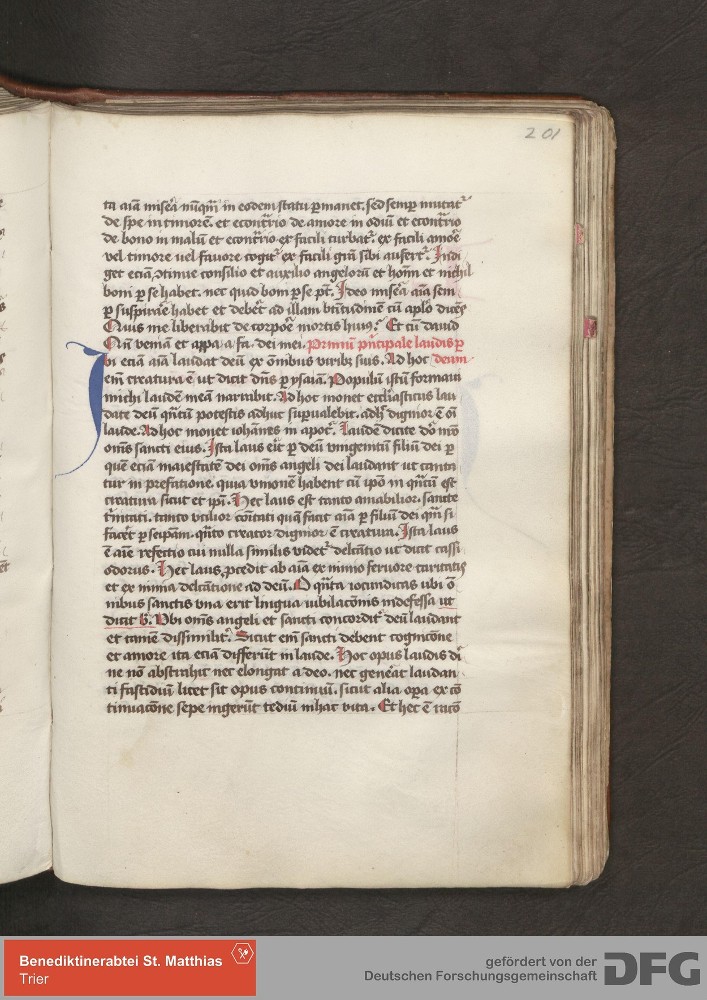 201
ta aīa misēa nūqm̄ in eodem statu ꝑmanet. sed semꝑ mutatᷣ
de spe in timorē. et econtrīo de amore in odiū et econtrīo
de bono in malū et econtrīo et facili turbatᷣ. ex facili amōe
vel timore uel fauore cogitᷣ ex facili grām sibi aufertᷣ. Indi
get eciā ꝯtinue consilio et auxilio angeloꝝ et hoīm et nichil
boni ꝑ se habet. nec quid boni ꝑ se pt̄. Ideo misēa aīa sem
ꝑ suspirare habet et debet ad illam btītudinē cū aplo dicēs
Quis me liberabit de corpoē mortis huius. Et cū dauid
Qn̄ veniā et appa. a. fa. dei mei. Primū prīcipale laudis ꝑ
bi eciā aīa laudat deū ex om̄ibus viribꝫ suis. Ad hoc deum
em̄ creatura ē ut dicit dn̄s ꝑ ysaiā. Populū istū formaui
michi laudē meā narrabit. Ad hoc monet ecclīasticus lau
date deū qn̄tū potestis adhuc suꝑualebit. adhꝰ dignior ē oī
laude. Ad hoc monet iohānes in apocᷣ. Laudē dicite dō nrō
om̄s sancti eius. Ista laus erit ꝑ deū vnigenitū filiū dei ꝑ
quē eciā maiestatē dei om̄s angeli dei laudant ut canta
tur in prefatione. quia vnionē habent cū ip̄o in qn̄tū est
creatura sicut et ip̄i. Hec laus est tanto amabilior. sancte
trīnitati. tanto vtilior cōitati quā facit aīa ꝑ filiū dei qm̄ si
facēt ꝑ seipam. qn̄to creator dignior ē creatura. Ista laus
ē aīe refectio cui nulla similis videtᷣ delcātio ut dicit cassi
odorus. Hec laus ꝓcedit ab aīa ex nimio feruore caritatis
et ex nimia delcātione ad deū. O qn̄ta iocunditas ubi ō
nibus sanctis vna erit lingua iubilacōnis indefessa ut
dicit b̄. Vbi om̄s angeli et sancti concorditᷣ deū laudant
et tamē dissimilitᷣ. Sicut em̄ sancti debent cognicōne
et amore ita eciā differūt in laude. Hoc opus laudis di
ne nō abstrahit nec elongat a deo. nec genēat laudan
ti fastidiū licet sit opus continuū. sicut alia oꝑa ex cō
tinuacōne sepe ingerūt tediū in hac vita. Et hec ē racō
Benediktinerabtei St. Matthias
Trier
gefördert von der
Deutschen Forschungsgemeinschaft
DFG